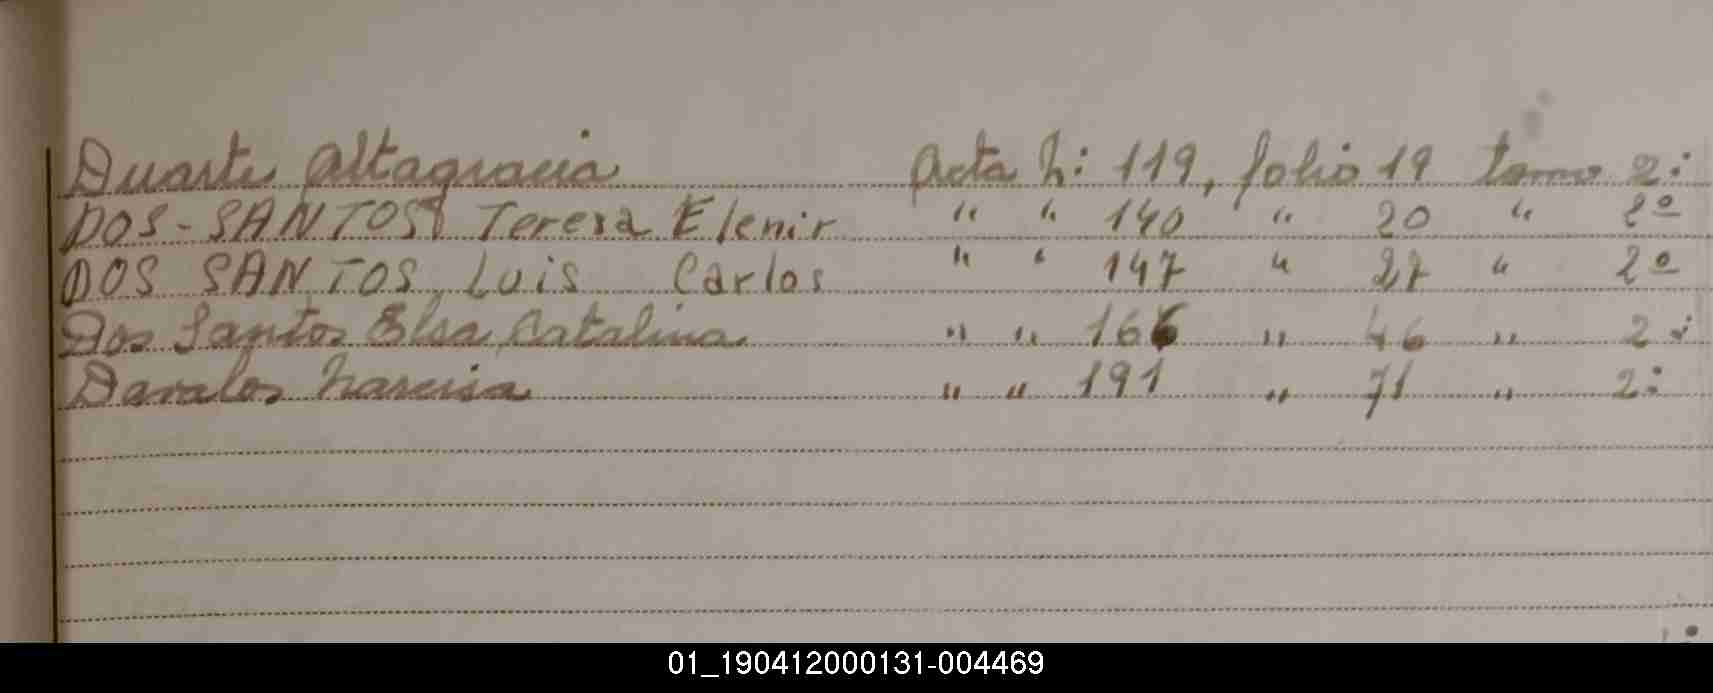 Duarte Altagracia Acta N: 119, folio 19 tomo 2:
DOS-SANTOS Teresa Elenir " " 140 " 20 " 2º
DOS SANTOS, Luis Carlos " " 147 " 27 " 2º
Dos Santos Elsa Catalina " " 166 " 46 " 2:
Davalos Narcisa " " 191 " 71 " 2:
01_190412000131-004469